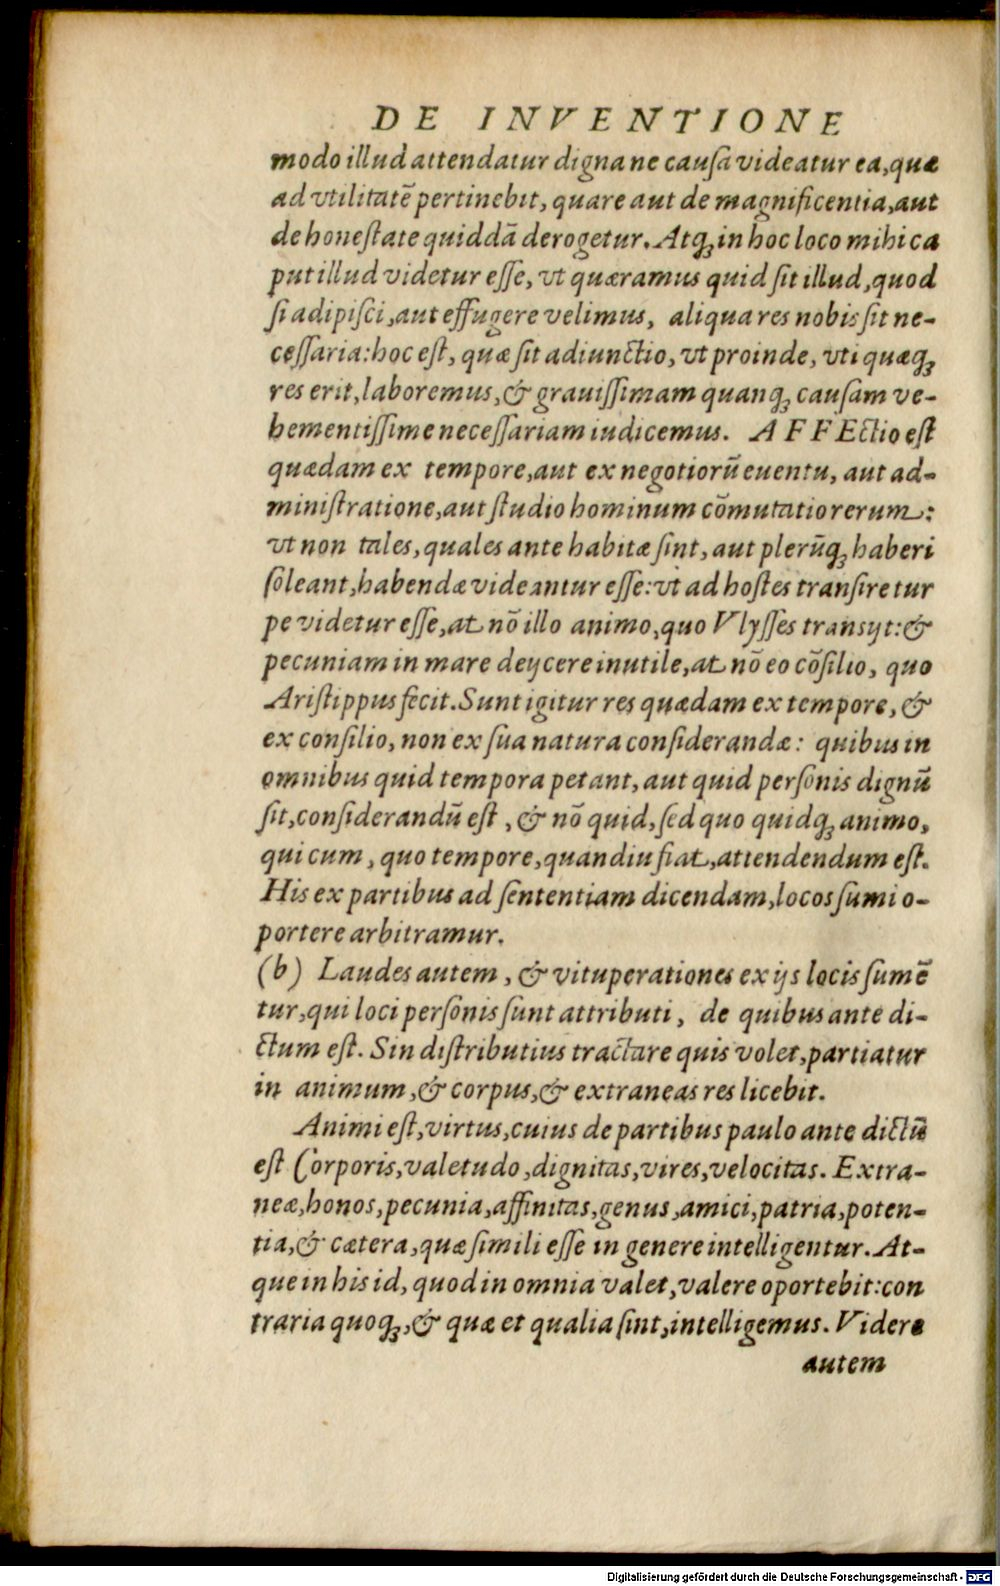 DE INVENTIONE
modo illud attendatur digna ne causa videatur ea, quæ
ad vtilitatē pertinebit, quare aut de magnificentia, aut
de honeſtate quiddā derogetur. Atqꝫ in hoc loco mihi ca
put illud videtur eſſe, vt quæramus quid ſit illud, quod
ſi adipiſci, aut effugere velimus, aliqua res nobis ſit ne-
ceſſaria: hoc eſt, quæ ſit adiunctio, vt proinde, vti quæqꝫ
res erit, laboremus, & grauiſſimam quanqꝫ cauſam ve-
hementiſſime neceſſariam iudicemus. AFFEctio eſt
quædam ex tempore, aut ex negotiorū euentu, aut ad-
miniſtratione, aut ſtudio hominum cōmutatio rerum:
vt non tales, quales ante habitæ ſint, aut plerūqꝫ haberi
ſoleant, habendæ videantur eſſe: vt ad hoſtes tranſire tur
pe videtur eſſe, at nō illo animo, quo Vlyſſes tranſijt: &
pecuniam in mare deijcere inutile, at nō eo cōſilio, quo
Ariſtippus fecit. Sunt igitur res quædam ex tempore, &
ex conſilio, non ex ſua natura conſiderandæ: quibus in
omnibus quid tempora petant, aut quid perſonis dignū
ſit, conſiderandū eſt, & nō quid, ſed quo quidqꝫ animo,
qui cum, quo tempore, quandiu fiat, attendendum eſt.
His ex partibus ad ſententiam dicendam, locos ſumi o-
portere arbitramur.
(b) Laudes autem, & vituperationes ex ijs locis ſumē
tur, qui loci perſonis ſunt attributi, de quibus ante di-
ctum eſt. Sin diſtributius tractare quis volet, partiatur
in animum, & corpus, & extraneas res licebit.
Animi eſt, virtus, cuius de partibus paulo ante dictū
eſt Corporis, valetudo, dignitas, vires, velocitas. Extra-
neæ, honos, pecunia, affinitas, genus, amici, patria, poten-
tia, & cætera, quæ ſimili eſſe in genere intelligentur. At-
que in his id, quod in omnia valet, valere oportebit: con
traria quoqꝫ, & quæ et qualia ſint, intelligemus. Videre
autem
Digitalisierung gefördert durch die Deutsche Forschungsgemeinschaft - DFG